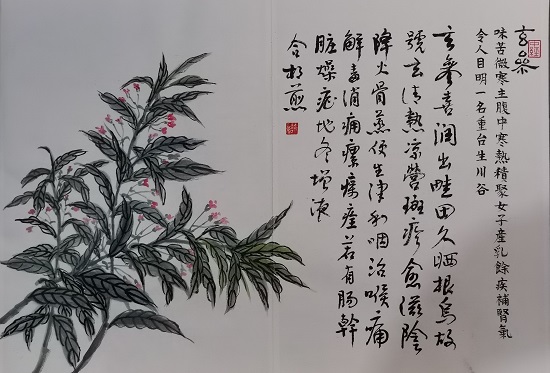 玄參
味苦微寒主腹中寒熱積聚女子產乳餘疾補腎氣
令人目明一名重台生川谷
玄參喜潤出畦田久晒根烏故
號玄清熱涼營斑疹愈滋陰
降火骨蒸便生津利咽治喉痛
解毒消痈瘰癧痊若有腸幹
脏燥症地冬增液
合相煎